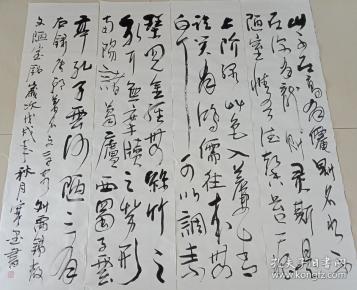 山不在高有僊則名水不
在深有龍則靈斯是
陋室惟吾德馨苔痕
上階綠草色入簾青
談笑有鴻儒往來無
白丁可以調素
琴閱金經無絲竹之
亂耳無案牘之勞形
南陽諸葛廬西蜀子雲
亭孔子云何陋之有
右錄唐劉禹錫散
文陋室銘歲次戊戌年秋月書